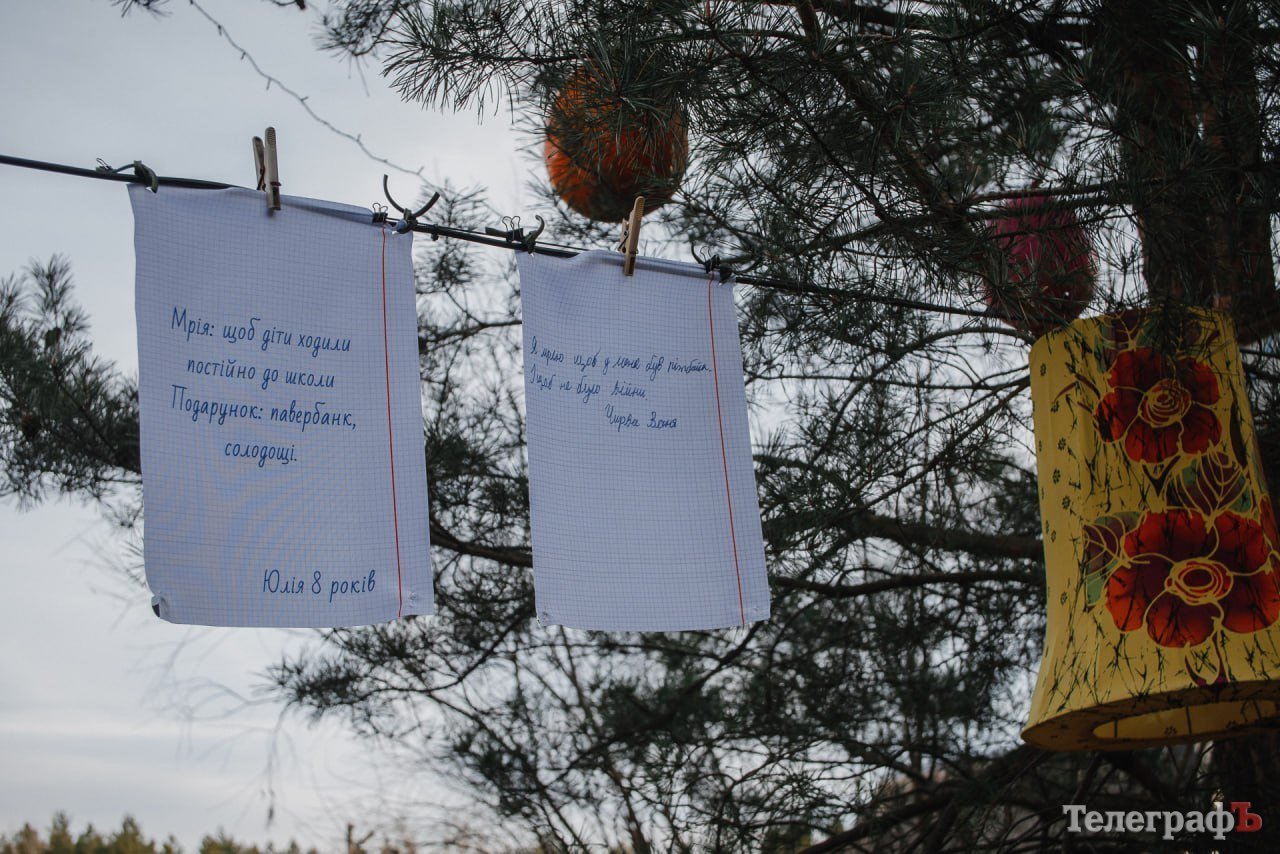 Мрія: щоб діти ходили
постійно до школи
Подарунок: павербанк,
солодощі.
Юлія 8 років
Я мрію щоб у мене був пітбайк.
І щоб не було війни
Чирва Ваня
ТелеграфЪ